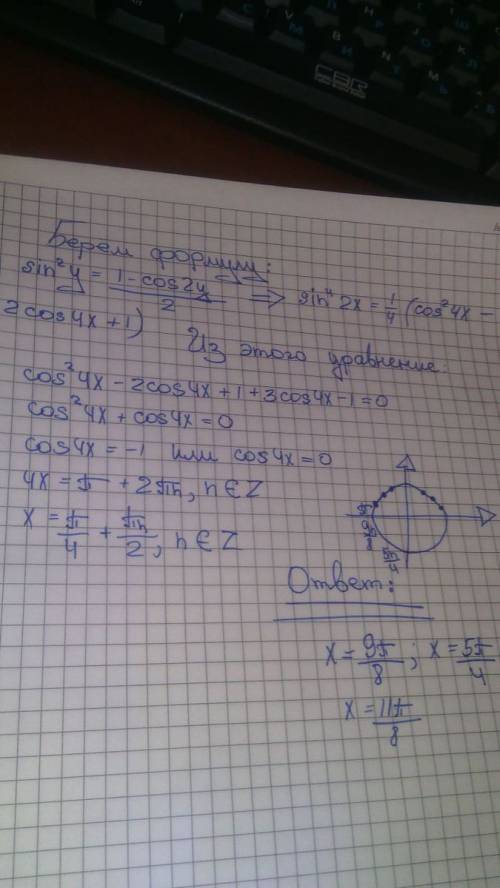 Берем формулу:
sin²y = (1 - cos2y)/2 ⇒ sin⁴2x = 1/4 (cos²4x -
2cos4x + 1)
Из этого уравнение:
cos²4x - 2cos4x + 1 + 3cos4x - 1 = 0
cos²4x + cos4x = 0
cos4x = -1 или cos4x = 0
4x = π + 2πn, n ∈ Z
x = π/4 + πn/2, n ∈ Z
Ответ:
x = 9π/8 ; x = 5π/4
x = 11π/8